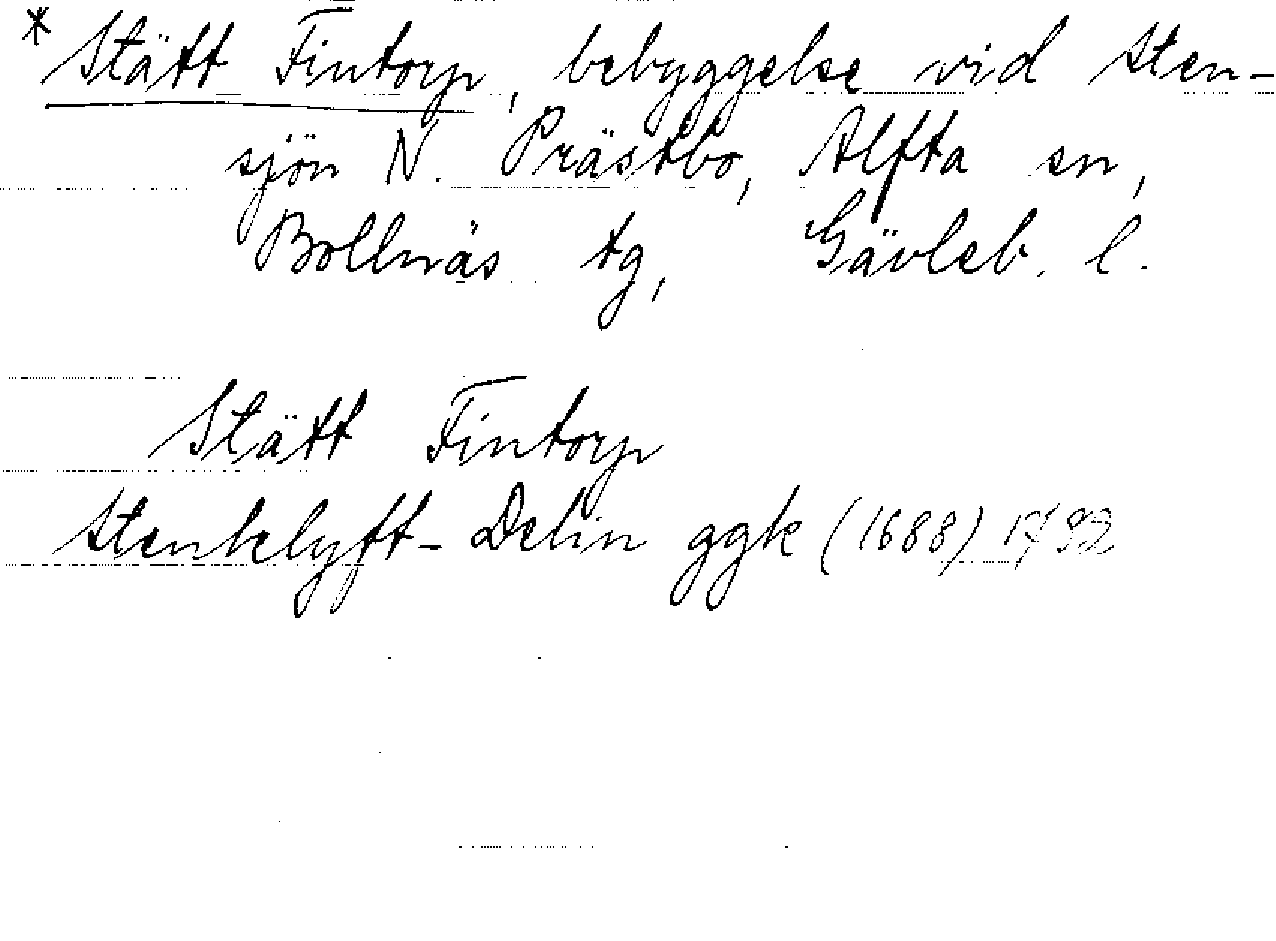 * Stätt Fintorp, bebyggelse vid Sten-
sjön N. Prästbo, Alfta sn,
Bollnäs tg, Gävleb. l.
Stätt Fintorp
Stenklyft-Delin ggk (1688) 1792